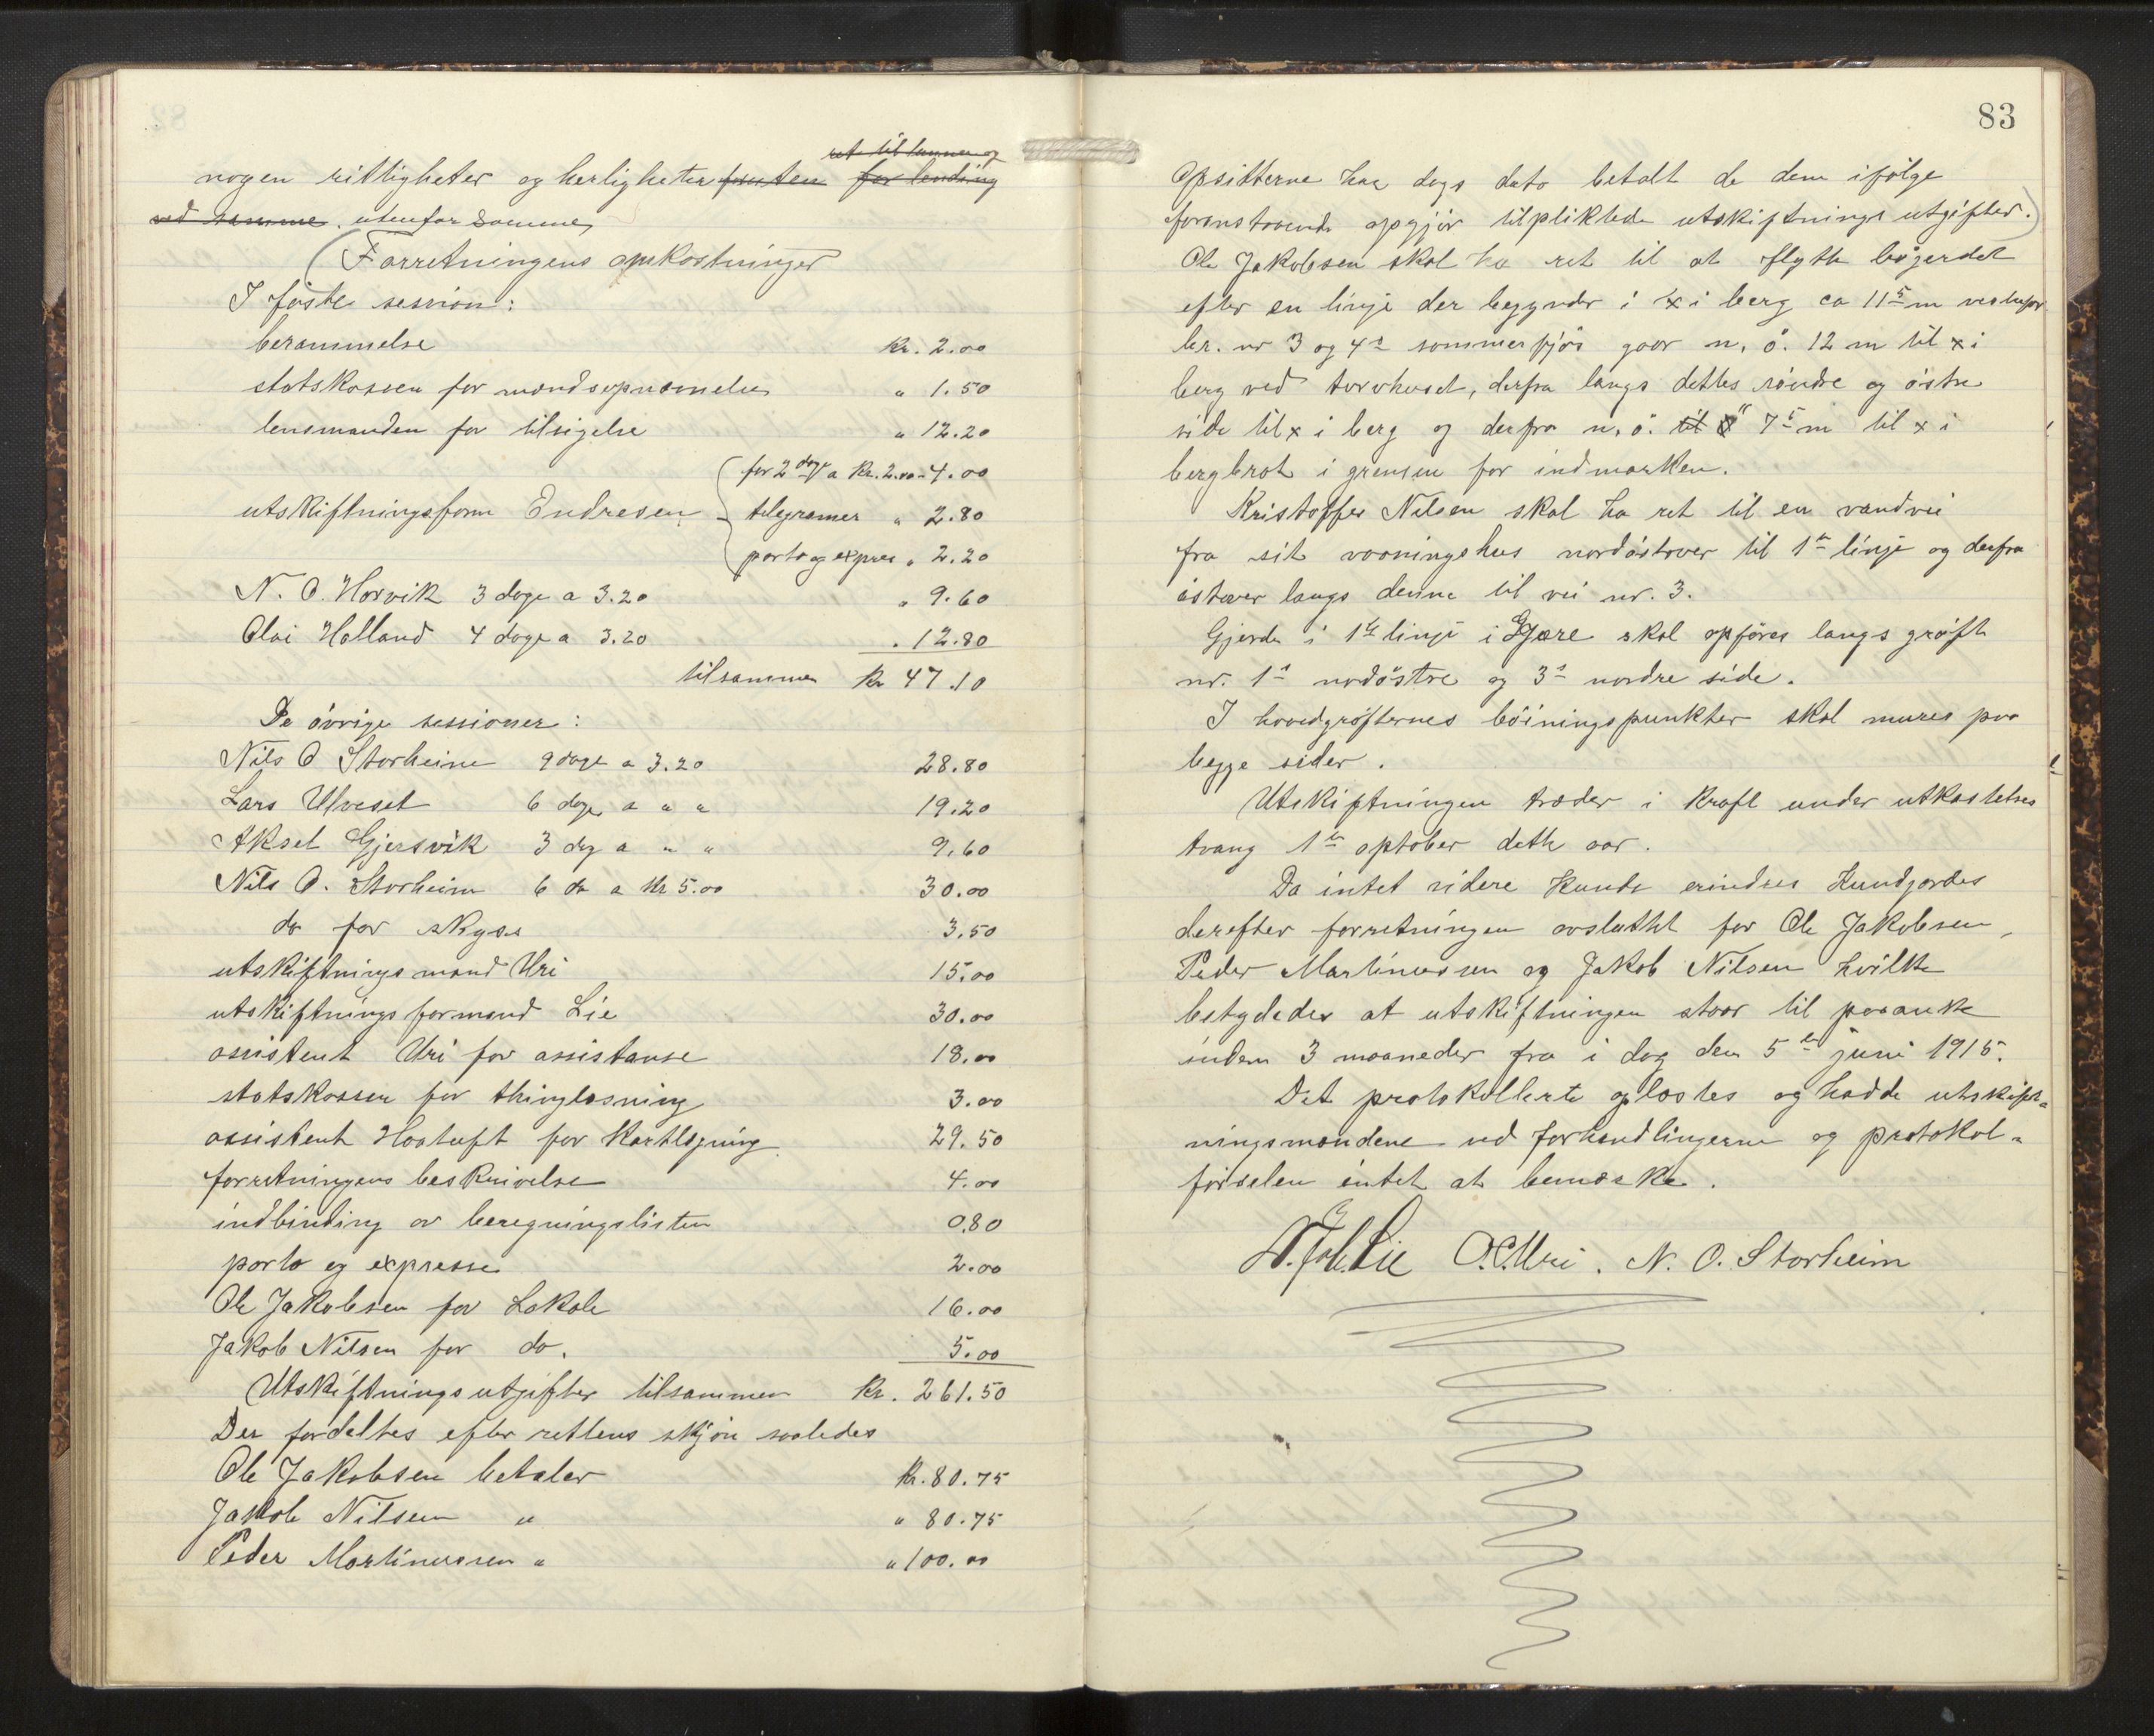 ret til lunner og
nogen rettigheter og herligheter foruten for lending
ved samme. utenfor samme,
(Forretningens omkostninger
I förste session:
berammelse Kr. 2.00
statskassen for mandsopnævnelse „ 1.50
lensmanden for tilsigelse „ 12.20
for 2 dage a Kr. 2.00 - 4.00
utskiftningsform Endresen telegramer „ 2.80
porto og expres „ 2.20
N. O. Horvik 3 dage a 3.20 „ 9.60
Olai Holland 4 dage a 3.20 „ 12.80
tilsammen Kr 47.10
De övrige sessioner:
Nils O Storheim 9 dage a 3.20 28.80
Lars Ulveset 6 dage a „ „ 19.20
Aksel Gjersvik 3 dag a „ „ 9.60
Nils O. Storheim 6 do a Kr 5.00 30.00
do for skyss 3.50
utskiftningsmand Uri 15.00
utskiftningsformand Lie 30.00
assistent Uri for assistanse 18.00
statskassen for thinglæsning 3.00
assistent Hostuft for Kartlægning 29.50
forretningens beskrivelse 4.00
indbinding av beregningslisten 0.80
porto og expresse 2.00
Ole Jakobsen for Lokale 16.00
Jakob Nilsen for do. 5.00
Utskiftningsutgifter tilsammen Kr. 261.50
Der fordeltes efter rettens skjön saaledes
Ole Jakobsen betaler Kr. 80.75
Jakob Nilsen „ „ 80.75
Peder Martinussen „ „ 100.00
83
Opsitterne har dags dato betalt de dem ifölge
foranstaaende opgjör tilpliktede utskiftningsutgifter.)
Ole Jakobsen skal ha ret til at flytte bögerdet
efter en linje der begynder i x i berg ca 11⁵ m vestenfor
br. nr 3 og 4s sommerfjös gaar n. ö. 12 m til x i
berg ved torvhuset, derfra langs dettes söndre og östre
side til x i berg og derfra n. ö. til x 7⁵ m til x i
bergbrot i grensen for indmarken.
Kristoffer Nilsen skal ha ret til en vandvei
fra sit vaaningshus nordöstover til 1ste linje og derfra
östover langs denne til vei nr. 3.
Gjerde i 1ste linje i Gjære skal opföres langs gröft
nr. 1s nordöstre og 3s nordre side.
I hovedgröfternes böiningspunkter skal mures paa
begge sider.
Utskiftningen træder i kraft under utkastelses
tvang 1ste optober dette aar.
Da intet videre kunde erindres kundgjordes
derefter forretningen avsluttet for Ole Jakobsen,
Peder Martinussen og Jakob Nilsen hvilke
betydedes at utskiftningen staar til paaanke
inden 3 maaneder fra i dag den 5te juni 1915.
Det protokollerte oplæstes og hadde utskift=
ningsmændene ved forhandlingerne og protokol=
förselen intet at bemærke.
Lie O. Uri. N. O. Storheim